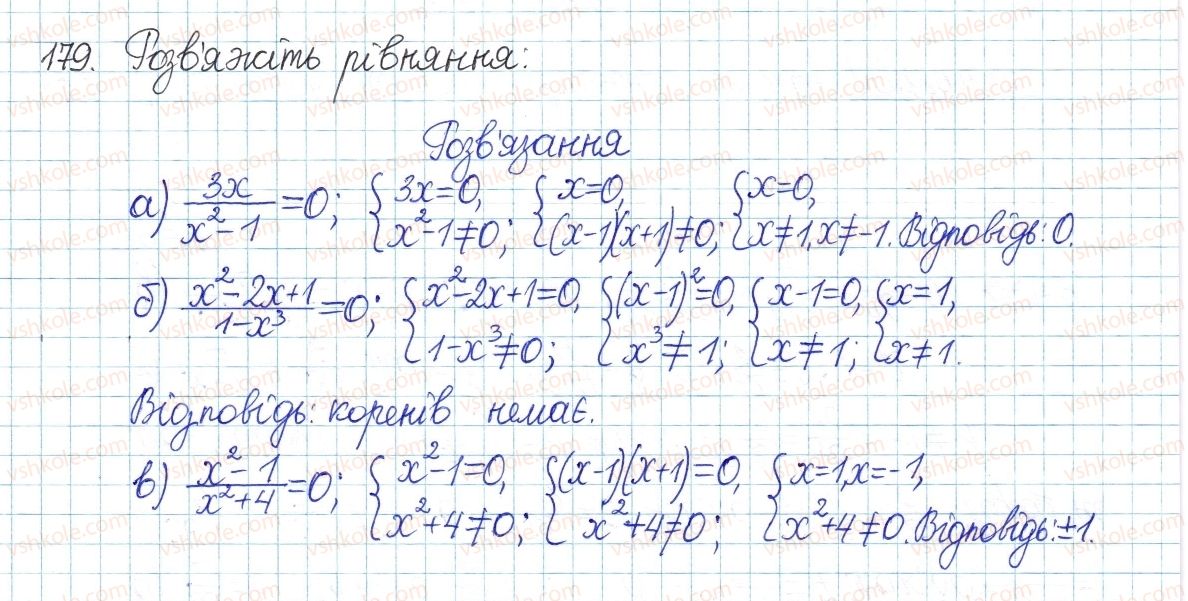 179. Розв'яжіть рівняння:
Розв'язання
а) 3x/(x²-1)=0; {3x=0, x²-1≠0; {x=0, (x-1)(x+1)≠0; {x=0, x≠1, x≠-1. Відповідь: 0.
б) (x²-2x+1)/(1-x³)=0; {x²-2x+1=0, 1-x³≠0; {(x-1)²=0, x³≠1; {x-1=0, x≠1; {x=1, x≠1.
Відповідь: коренів немає.
в) (x²-1)/(x²+4)=0; {x²-1=0, x²+4≠0; {(x-1)(x+1)=0, x²+4≠0; {x=1, x=-1, x²+4≠0. Відповідь: ±1.